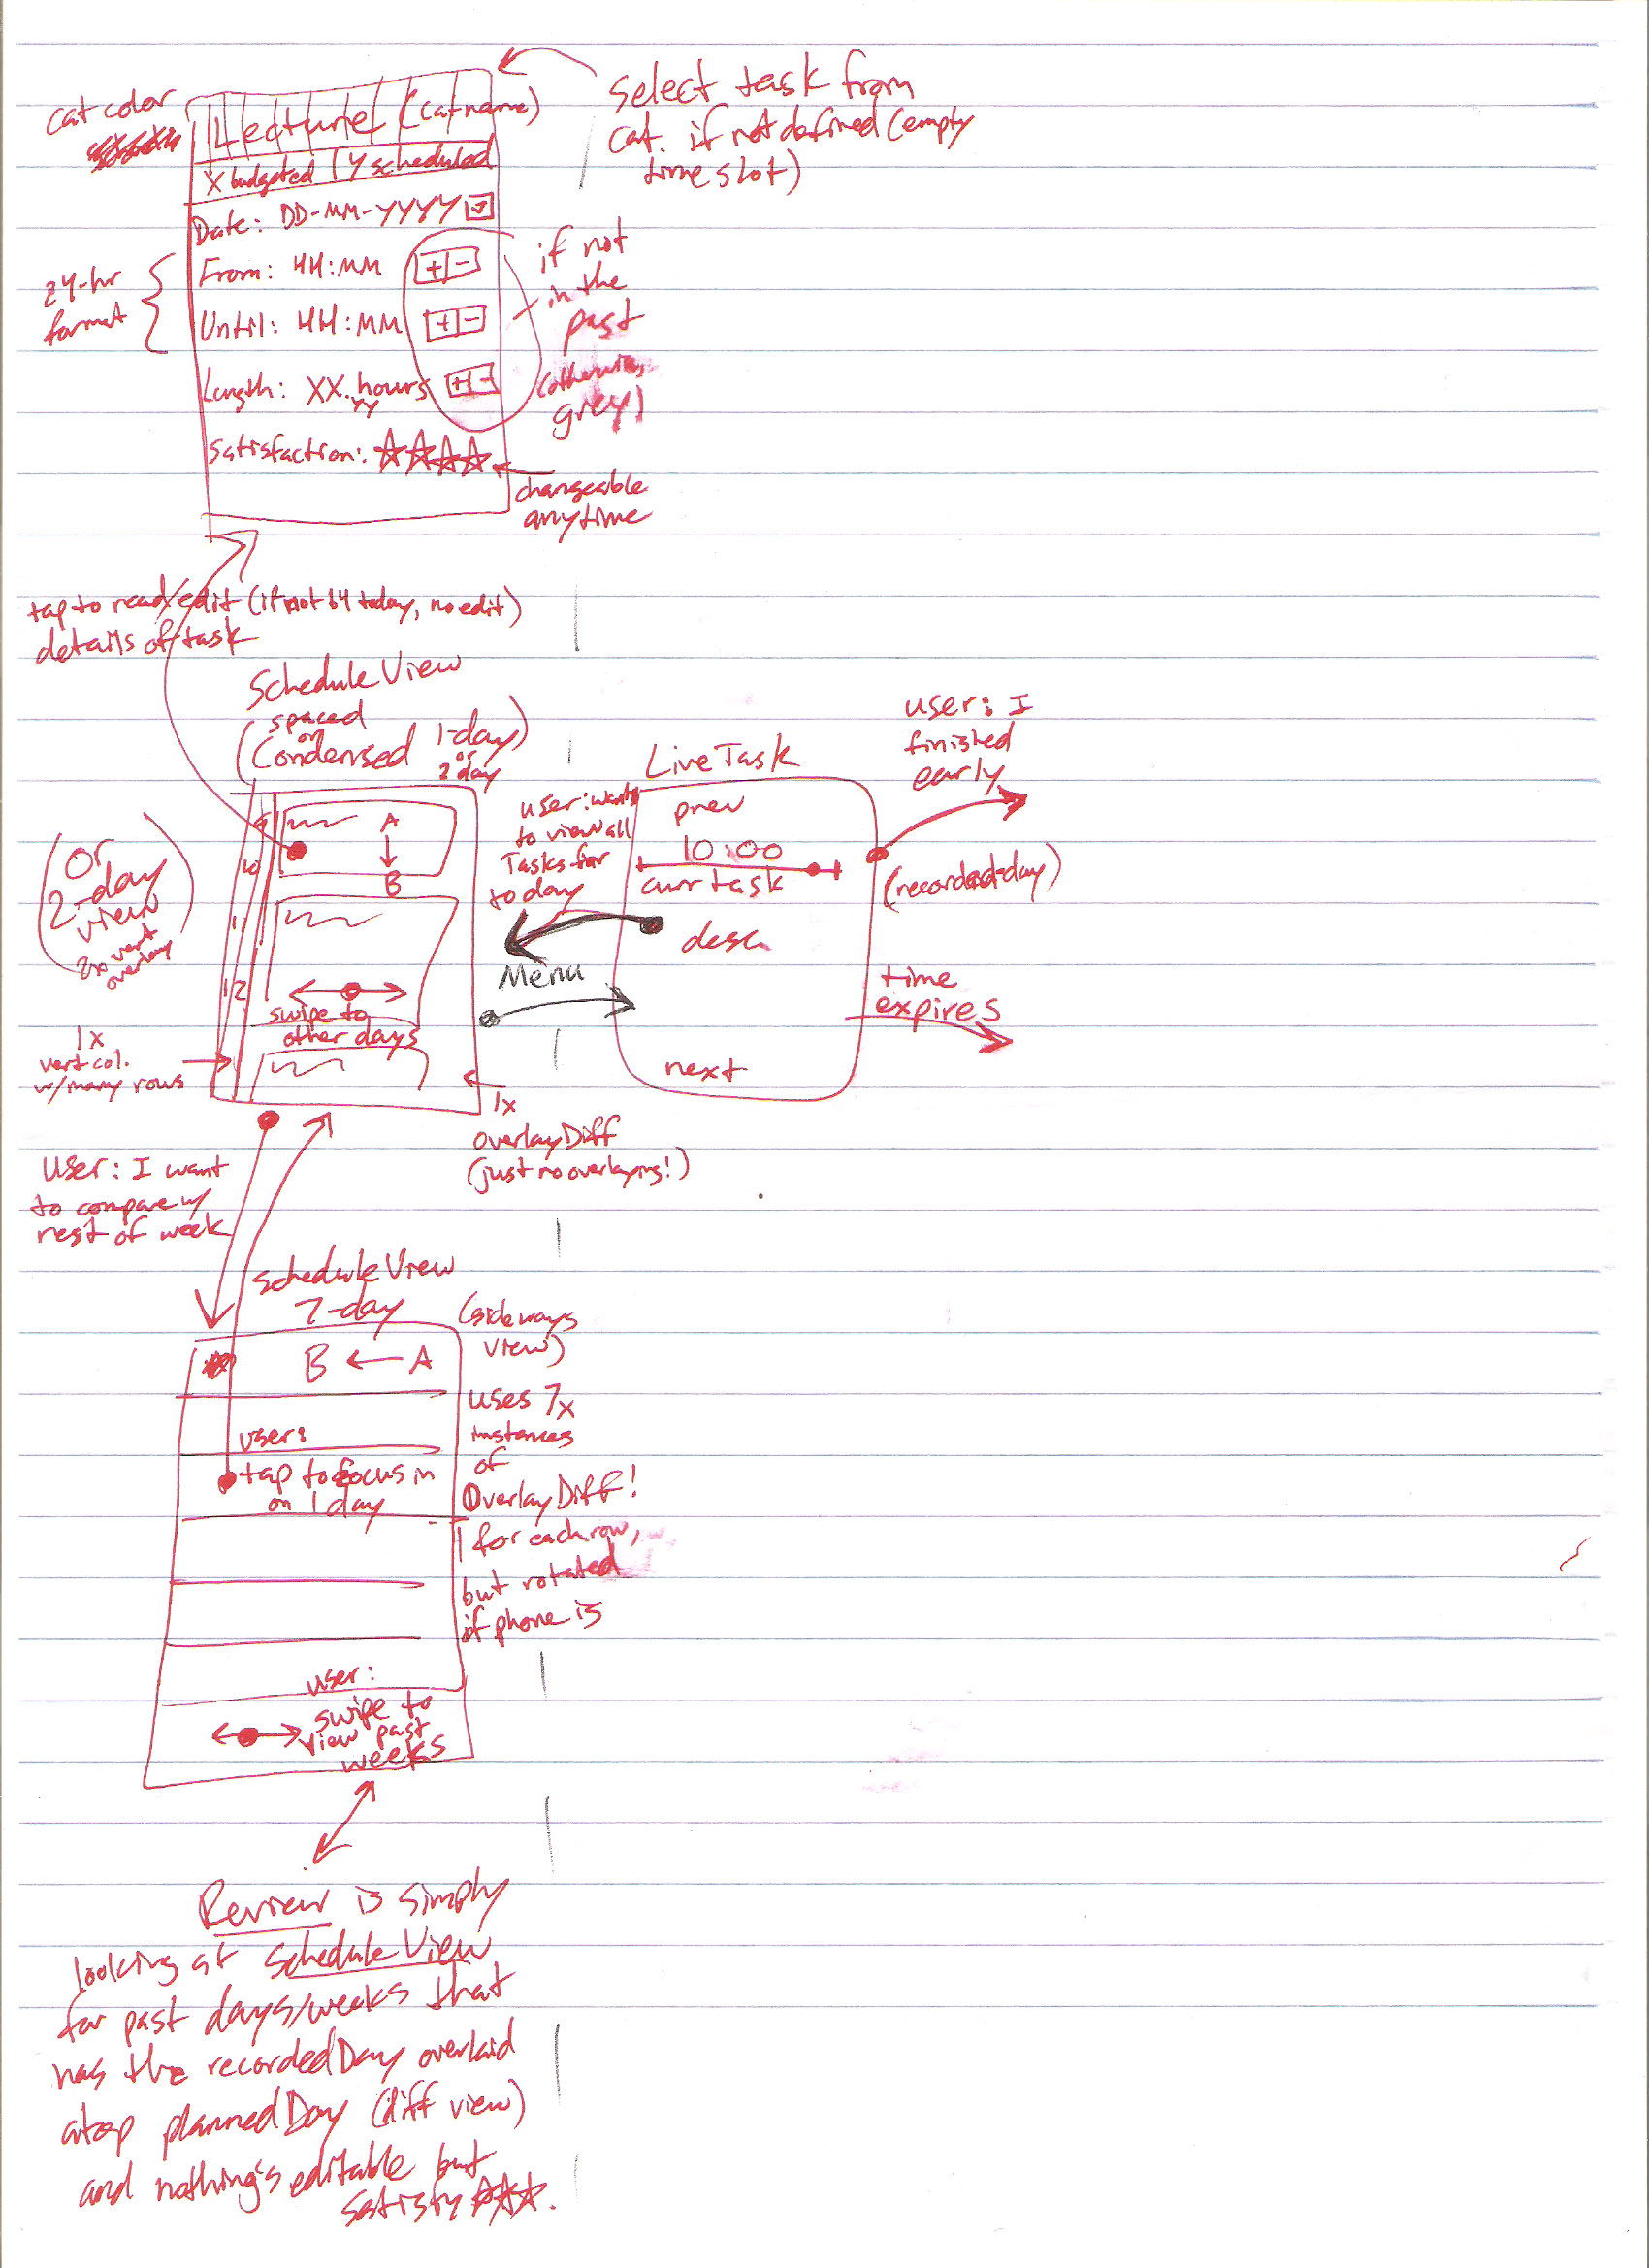 cat color
Lecture (catname)
X budgeted | Y scheduled
Date: DD-MM-YYYY
From: HH:MM + -
Until: HH:MM + -
Length: XX. hours + -
YY
Satisfaction:
24-hr
format
Select task from
cat. if not defined (empty
time slot)
if not
in the
past
(otherwise,
grey)
changeable
anytime
tap to read/edit (if not by today, no edit)
details of task
ScheduleView
spaced
or
(Condensed 1-day)
or
2 day
(or
2-day
view
2x vert
overlay)
9
10
11
12
A
B
swipe to
other days
1x
vert col.
w/many rows
1x
overlayDiff
(just no overlaying!)
user: wants
to view all
Tasks for
today
Menu
LiveTask
prev
10:00
curr task
desc
next
user: I
finished
early
(recorded-day)
time
expires
User: I want
to compare w/
rest of week
ScheduleView
7-day
(sideways
view)
B A
user:
tap to focus in
on 1 day
uses 7x
instances
of
OverlayDiff!
1 for each row,
but rotated
if phone is
user:
swipe to
view past
weeks
Review is simply
looking at ScheduleView
for past days/weeks that
has the recordedDay overlaid
atop plannedDay (diff view)
and nothing's editable but
satisfy